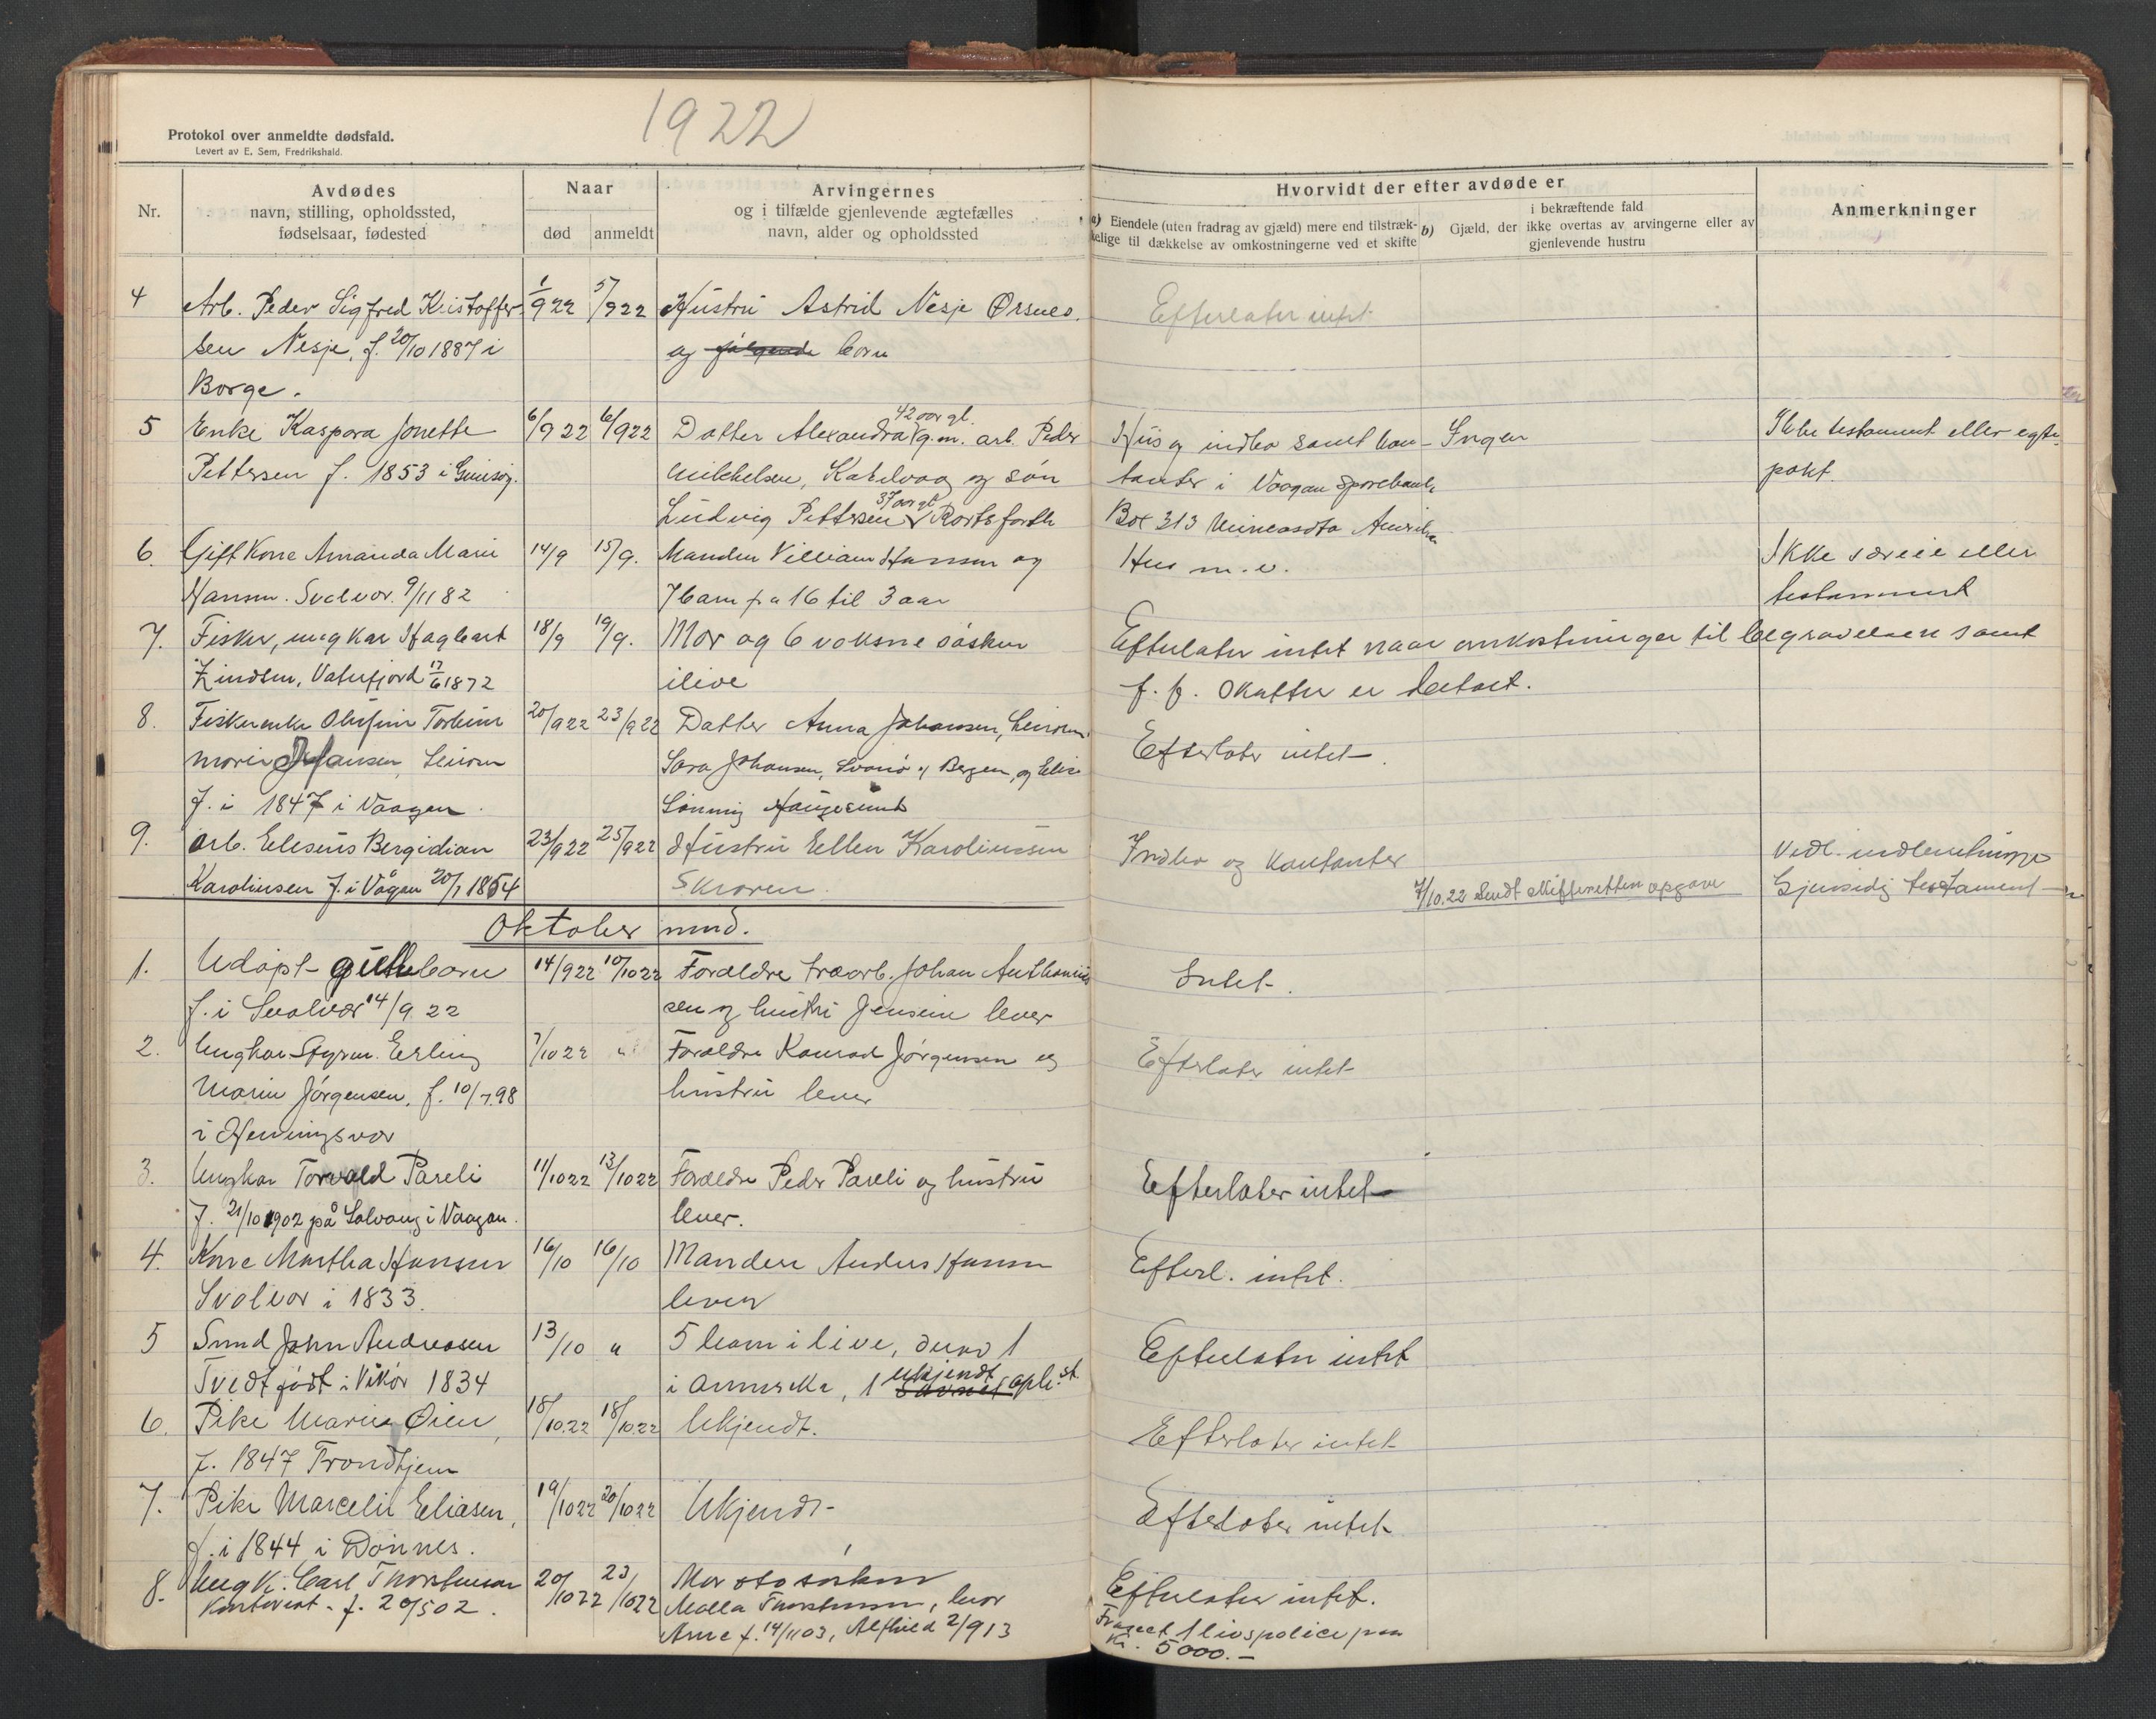 1922
Protokol over anmeldte dødsfald.
Levert av E. Sem, Fredrikshald.
Nr.
Avdødes
navn, stilling, opholdssted,
fødselsaar, fødested
Naar
død
anmeldt
Arvingernes
og i tilfælde gjenlevende ægtefælles
navn, alder og opholdssted
Hvorvidt der efter avdøde er
a) Eiendele (uten fradrag av gjæld) mere end tilstræk-
kelige til dækkelse av omkostningerne ved et skifte
b) Gjæld, der
i bekræftende fald
ikke overtas av arvingerne eller av
gjenlevende hustru
Anmerkninger
4
Arb. Peder Sigfred Kristoffer-
sen Nesje, f. 20/10 1887 i
Borge.
1/9 22
5/9 22
Hustru Astrid Nesje Ørsnes.
og følgende born
Efterlater intet
5
Enke Kaspara Jonette
Pettersen f. 1853 i Gimsøy.
6/9 22
6/9 22
Datter Alexandra 42 aar gl. g.m. arb. Peder
Mikkelsen, Kabelvaag og søn
Ludvig Pettersen 37 aar gl.
Box 313 Minneasota Amerika
Hus og indbo samt kon-
tanter i Vaagan Sparebank
Ingen
Ikke testament eller egte-
pakt
6.
Gift Kone Amanda Marie
Hansen. Svolvær. 9/11 82
14/9
15/9.
Manden Villiam Hansen og
7 barn fra 16 til 3 aar
Hus m.v.
Ikke særeie eller
testament
7.
Fisker, ungkar Hagbart
Zindsen, Vaterfjord 17/6 1872
18/9
19/9.
Mor og 6 voksne søsken
ilive
Efterlater intet naar omkostninger til begravelsen samt
f. f. skatter er betalt.
8.
Fiskerenke Olufine
Marie Johansen,
f. i 1847 i Vaagan.
20/9 22
23/9 22
Datter Anna Johansen,
Sara Johansen, Svanø pr Bergen, og Elise
Lønning Haugesund
Efterlater intet.
9.
arb. Eleseus Bergidian
Karoliusen f. i Vågan 20/1 1854
23/9 22
25/9 22
Hustru Ellen Karoliussen
Skroven.
Indbo og Kontanter
7/10.22 Sendt Skifteretten opgave
Vedl.
Gjensidig testament
Oktober mnd.
1.
Udøpt guttebarn
f. i Svolvær 14/9 22
14/9 22
10/10 22
Forældre træarb. Johan Anthonius-
sen og hustru Jensine lever
Intet.
2.
Ungkar Styrm. Erling
Marin Jørgensen, f. 10/7 98
i Henningsvær
7/10 22
"
Forældre Konrad Jørgensen og
hustru lever
Efterlater intet
3.
Ungkar Torvald Pareli
f. 21/10 1902 på Solvang i Vaagan.
11/10 22
13/10 22
Forældre Peder Pareli og hustru
lever.
Efterlater intet
4.
Kone Martha Hansen
Svolvær i 1833.
16/10
16/10
Manden Anders Hansen
lever
Efterl. intet.
5
Smed John Andreasen
Tvedt født i Vikør 1834
13/10
"
5 barn i live, derav 1
i Amerika, 1 ukjendt oph.st.
Efterlater intet
6.
Pike Marie Øien,
f. 1847 Trondhjem
18/10.22
18/10.22
Ukjendt.
Efterlater intet
7.
Pike Marcelie Eliasen,
f. i 1844 i Dønnes.
19/10 22
20/10 22
Ukjendt
Efterlater intet
8.
Ungk. Carl Thorstensen
Kontorist. f. 20/5 02.
20/10 22
23/10 22
Mor og to søsken
Malla Thorstensen, hvor
Arne f. 14/11 03, Alfhild 2/9 13
Efterlater intet.
Fraseet 1 livspolice paa
Kr. 5000.-